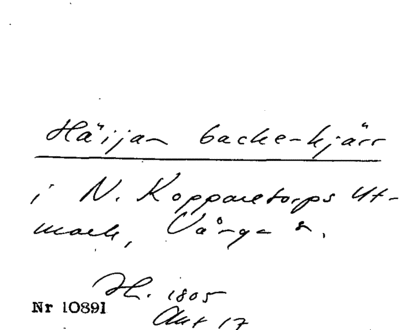 Häijan backe-kjärr
i N. Kopparetorps Ut-
mark, Vånga s.
H. 1805
Akt 17
Nr 10891